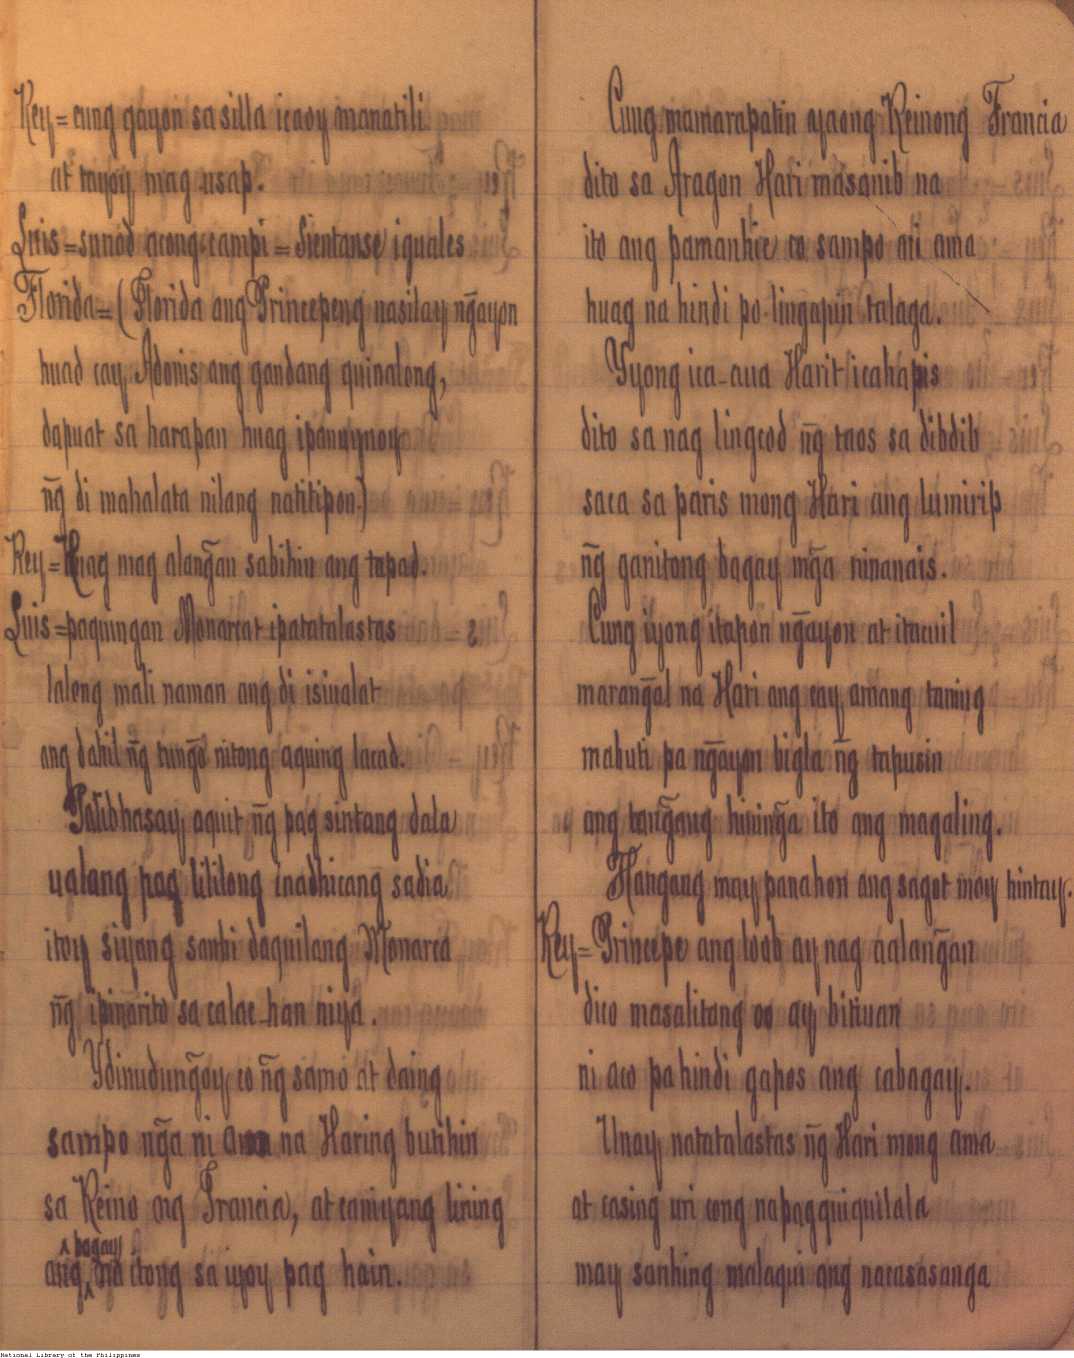 Rey = cung gayon sa silla icaoy manatili
at tayoy mag usap.
Luis = sunod acong campi = Sientanse iguales
Florida = ( Florida ang Princepeng nasilay ng̃ayon
huad cay Adonis ang gandang quinalong,
dapuat sa harapan huag ipauaynoy
ng̃ di mahalata nilang natitipon.)
Rey = Huag mag alang̃an sabihin ang tapad.
Luis = paquingan Monarcat ipatatalastas
laleng mali naman ang di isiualat
ang dahil ng̃ tung̃o nitong aquing lacad.
Palibhasay aquit ng̃ pag sintang dala
ualang pag lililong inadhicang sadia
itoy siyang sanhi daquilang Monarca
ng̃ ipinarito sa calac-han niya.
Ydinudung̃oy co ng̃ samo at daing
sampo ng̃a ni ama na Haring butihin
sa Reino ang Francia, at caniyang lining
bagay
ang na itong sa iyoy pag hain.
Cung mamarapatin ayaong Reinong Francia
dito sa Aragon Hari masanib na
ito ang pamanhic co sampo ni ama
huag na hindi po ling̃apin talaga.
Yyong ica-aua Harit icahapis
dito sa nag lingcod ng̃ taos sa dibdib
saca sa paris mong Hari ang lumirip
ng̃ ganitong bagay mg̃a ninanais.
Cung iyong itapon ng̃ayon at itacuil
marang̃al na Hari ang cay amang taning
mabuti pa ng̃ayon bigla ng̃ tapusin
ang tang̃ang hining̃a ito ang magaling.
Hangang may panahon ang sagot moy hintay.
Rey = Princepe ang loob ay nag aalang̃an
dico masalitang oo ay bitiuan
ni aco pa hindi gapos ang cabagay.
Unay natatalastas ng̃ Hari mong ama
at casing uri cong napagquiquilala
may sanhing malaqui ang nacasasanga
National Library of the Philippines